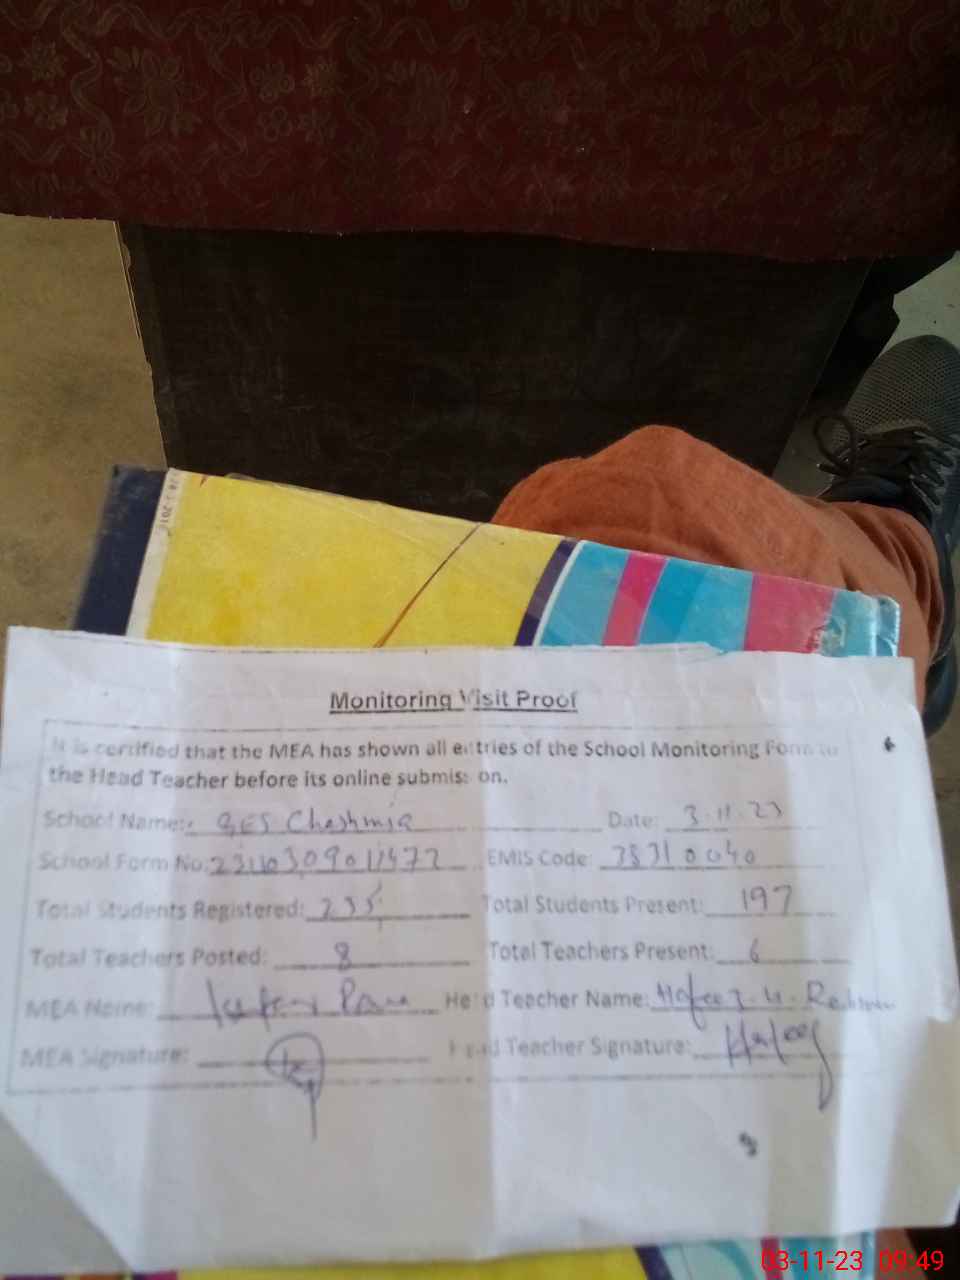 Monitoring Visit Proof
It is certified that the MEA has shown all entries of the School Monitoring Form to
the Head Teacher before its online submission.
School Name: GES Chashmia Date: 3.11.23
School Form No: EMIS Code: 38310040
Total Students Registered: 235 Total Students Present: 197
Total Teachers Posted: 8 Total Teachers Present: 6
MEA Name: Head Teacher Name: Hafeez.U.Rehman
MEA Signature: Head Teacher Signature: Hafeez
03-11-23 09:49